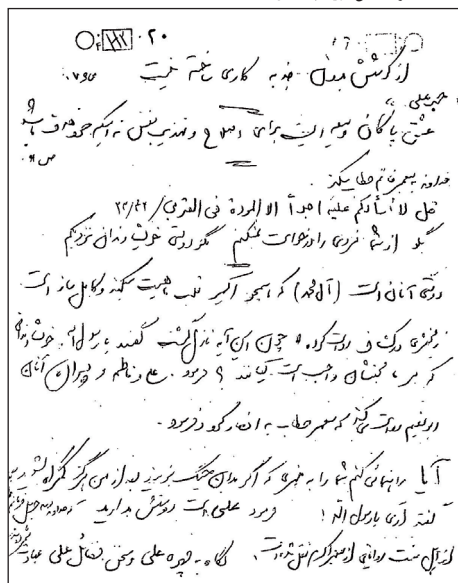 ۲۰
از کوشش بدون جذبه کاری ساخته نیست ص ۷۹
عشق پاکان وسیله ایست برای اصلاح و تهذیب نفس نه اینکه خود هدف باشد
خداوند به پیغمبر خاتم خطاب میکند
قل لا أسألکم علیه اجراً الا المودة فی القربی ۴۲/۲۳
بگو از شما مزدی را درخواست نمیکنم مگر دوستی خویشاوندان نزدیکم
دوستی آنان است (آل محمد) که همچو اکسیر قلب ماهیت میکند و کامل ساز است
زمخشری در کشاف روایت کرده: چون این آیه نازل گشت گفتند یا رسول الله خویشاوندانی
که بر ما محبتشان واجب است کیانند؟ فرمود: علی و فاطمه و پسران آنان
ابونعیم روایت میکند که پیغمبر خطاب به انصار کرد و فرمود.
آیا راهنمائی کنم شما را به چیزی که اگر بدان چنگ بزنید بعد از من هرگز گمراه نشوید
گفتند آری یا رسول الله! فرمود علی است دوستش بدارید
از اهل سنت روایاتی از پیغمبر اکرم نقل شده است. نگاه به چهره علی و سخن فضائل علی عبادت